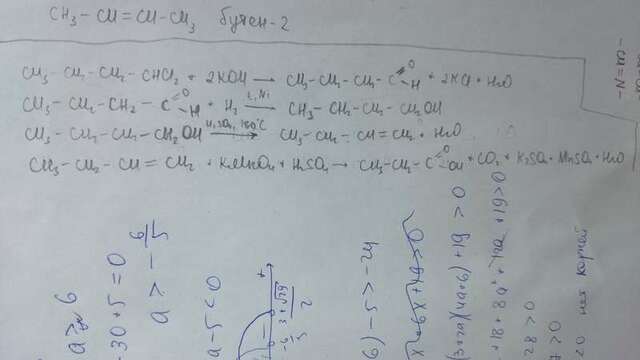 CH3 – CH = CH – CH3 бутен-2
CH3 – CH2 – CH2 – CHCl2 + 2KOH → CH3 – CH2 – CH2 – C =O – H + 2KCl + H2O
CH3 – CH2 – CH2 – C =O – H + H2 t, Ni → CH3 – CH2 – CH2 – CH2OH
CH3 – CH2 – CH2 – CH2OH H2SO4, 150°C → CH3 – CH2 – CH = CH2 + H2O
CH3 – CH2 – CH = CH2 + KMnO4 + H2SO4 → CH3 – CH2 – C =O OH + CO2 + K2SO4 + MnSO4 + H2O
– CH = N –
a ≥ 6
- 30 + 5 = 0
a > - 6/5
a - 5 < 0
+
3 + √29
2
6) - 5 > - 24
+ 2a)(4a + 6) + 19 > 0
+ 18 + 8a² + 12a + 19 > 0
28 > 0
7 > 0
20 нет корней